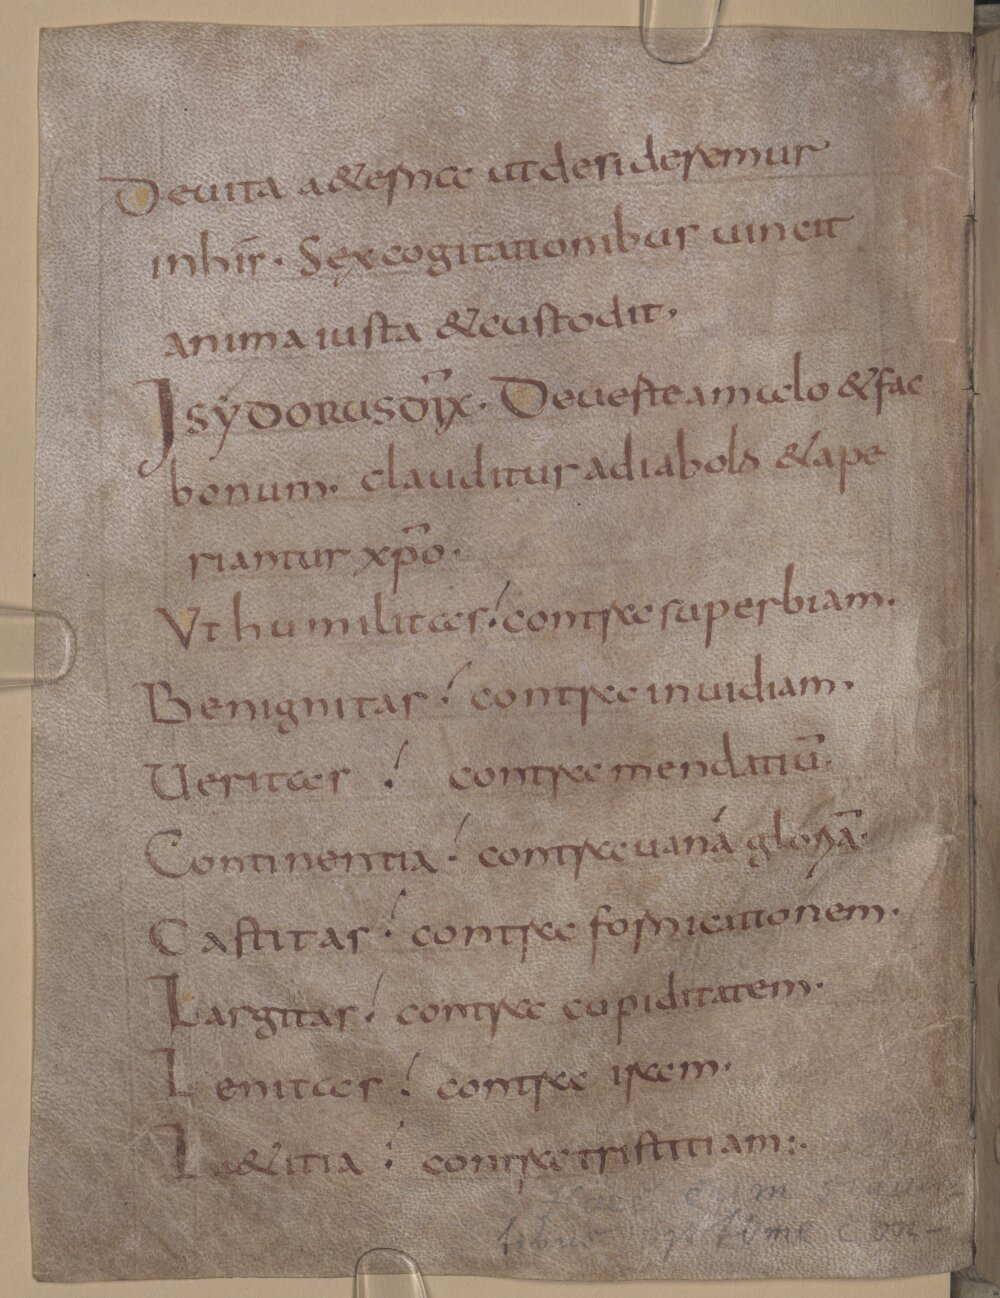 De uita aeterna ut desideremur
in his. Sex cogitationibus uincit
anima iusta & custodit.
Isydorus dix̄. De ueste a malo & fac
bonum. clauditur a diabolo & ape
riantur xp̄o.
Ut humilitas contra superbiam.
Benignitas contra inuidiam.
Ueritas contra mendatiū.
Continentia contra uanā gloriā.
Castitas contra fornicationem.
Largitas contra cupiditatem.
Lenitas contra iram.
Laetitia contra tristitiam